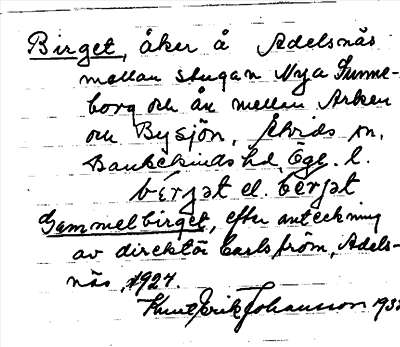 Birget, åker å Adelsnäs
mellan stugan Nya Gunne-
borg och ån mellan Arken
och Bysjön, Åtvids sn,
Bankekinds hd, Ögl. l.
bérjət el. bèrjət
Gammelbirget, efter anteckning
av direktör Carlström, Adels-
näs, 1924.
Knut Erik Johansson